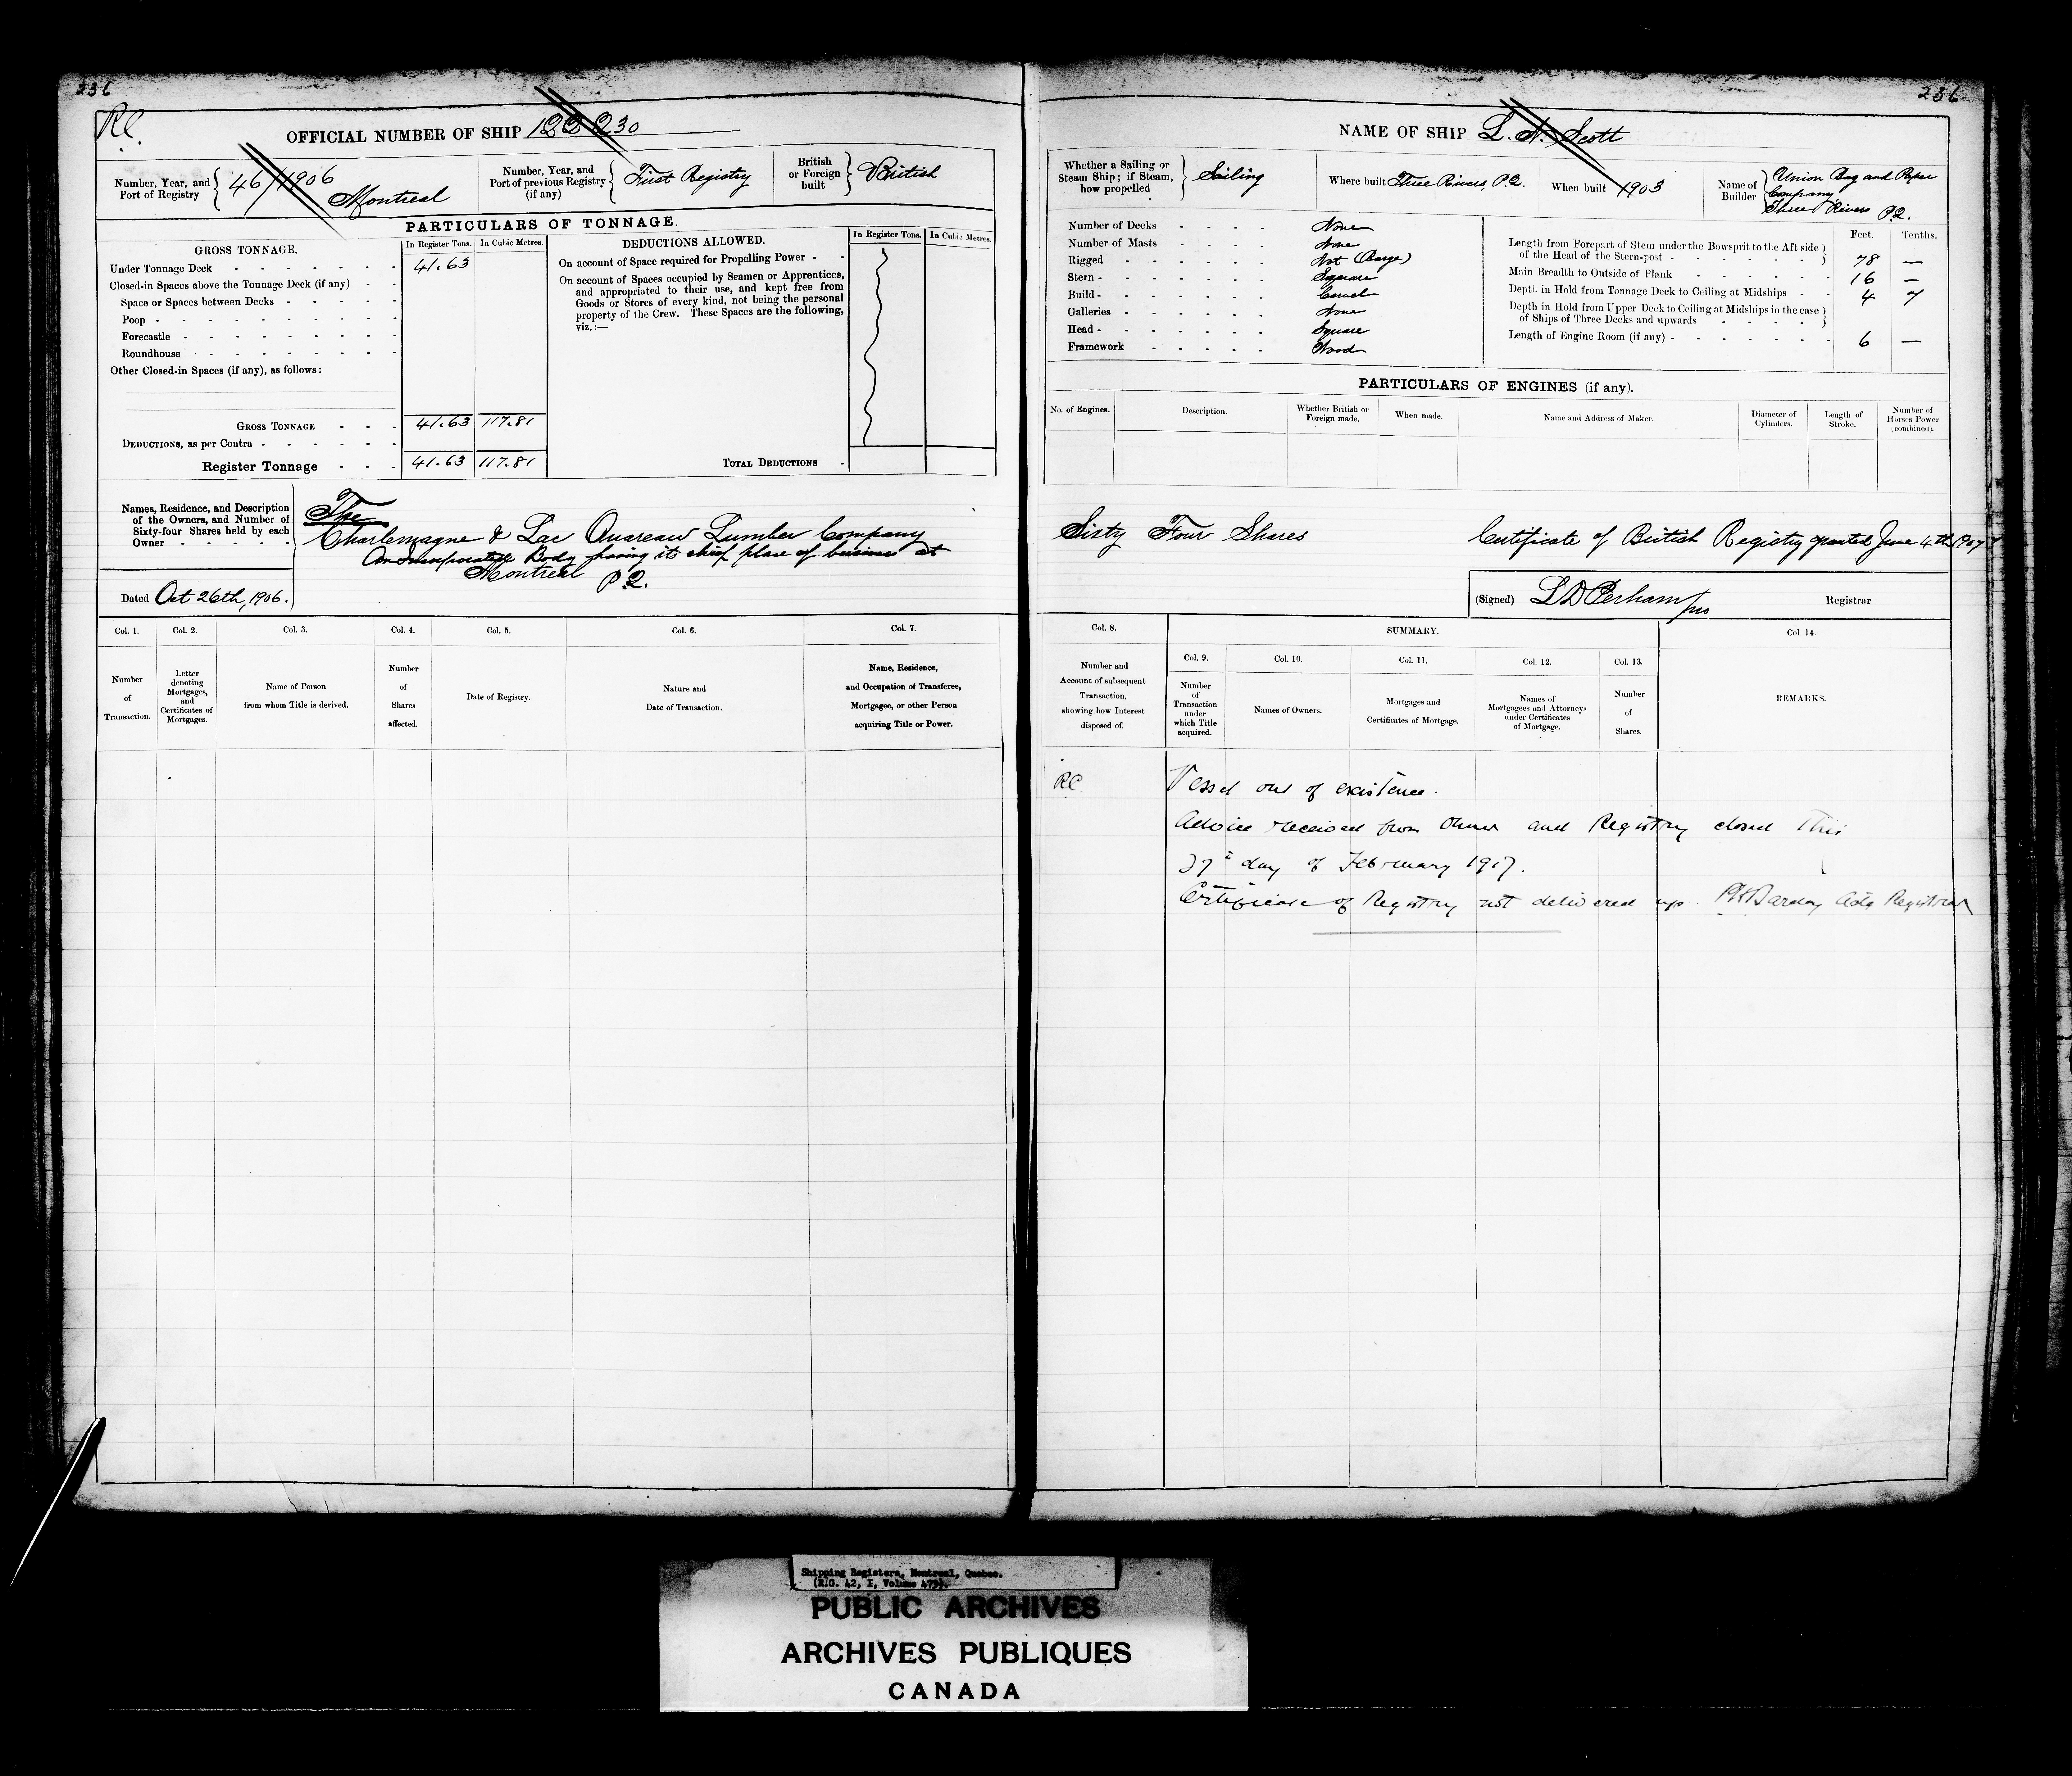 236
RC
OFFICIAL NUMBER OF SHIP 122230
Number, Year, and Port of Registry 46/1906 Montreal
Number, Year, and Port of previous Registry (if any) First Registry
British or Foreign built British
PARTICULARS OF TONNAGE.
GROSS TONNAGE.
In Register Tons. In Cubic Metres.
Under Tonnage Deck 41.63
Closed-in Spaces above the Tonnage Deck (if any)
Space or Spaces between Decks
Poop
Forecastle
Roundhouse
Other Closed-in Spaces (if any), as follows:
GROSS TONNAGE 41.63 117.81
DEDUCTIONS, as per Contra
Register Tonnage 41.63 117.81
DEDUCTIONS ALLOWED.
In Register Tons. In Cubic Metres.
On account of Space required for Propelling Power
On account of Spaces occupied by Seamen or Apprentices,
and appropriated to their use, and kept free from
Goods or Stores of every kind, not being the personal
property of the Crew. These Spaces are the following,
viz.:—
TOTAL DEDUCTIONS
Names, Residence, and Description
of the Owners, and Number of
Sixty-four Shares held by each
Owner
The
Charlemagne & Lac Ouareau Lumber Company
An Incorporated Body having its chief place of business at
Montreal P.Q.
Dated Oct 26th, 1906.
Col. 1. Col. 2. Col. 3. Col. 4. Col. 5. Col. 6. Col. 7.
Number of Transaction.
Letter denoting Mortgages, and Certificates of Mortgages.
Name of Person from whom Title is derived.
Number of Shares affected.
Date of Registry.
Nature and Date of Transaction.
Name, Residence, and Occupation of Transferee, Mortgagee, or other Person acquiring Title or Power.
236
NAME OF SHIP L. N. Scott
Whether a Sailing or Steam Ship; if Steam, how propelled Sailing
Where built Three Rivers, P.Q.
When built 1903
Name of Builder Union Bag and Paper Company Three Rivers P.Q.
Number of Decks None
Number of Masts None
Rigged Not (Barge)
Stern Square
Build Carvel
Galleries None
Head Square
Framework Wood
Feet. Tenths.
Length from Forepart of Stem under the Bowsprit to the Aft side
of the Head of the Stern-post 78 —
Main Breadth to Outside of Plank 16 —
Depth in Hold from Tonnage Deck to Ceiling at Midships 4 7
Depth in Hold from Upper Deck to Ceiling at Midships in the case
of Ships of Three Decks and upwards
Length of Engine Room (if any) 6 —
PARTICULARS OF ENGINES (if any).
No. of Engines.
Description.
Whether British or Foreign made.
When made.
Name and Address of Maker.
Diameter of Cylinders.
Length of Stroke.
Number of Horses Power (combined).
Sixty Four Shares
Certificate of British Registry granted June 4th 1907
(Signed) L D Perham Registrar
Col. 8. SUMMARY. Col 14.
Col. 9. Col. 10. Col. 11. Col. 12. Col. 13.
Number and Account of subsequent Transaction, showing how Interest disposed of.
Number of Transaction under which Title acquired.
Names of Owners.
Mortgages and Certificates of Mortgage.
Names of Mortgagees and Attorneys under Certificates of Mortgage.
Number of Shares.
REMARKS.
RC
Vessel out of existence.
Advice received from Owner and Registry closed This
27th day of February 1917.
Certificate of Registry not delivered up. Actg Registrar
Shipping Registers, Montreal, Quebec.
PUBLIC ARCHIVES
ARCHIVES PUBLIQUES
CANADA